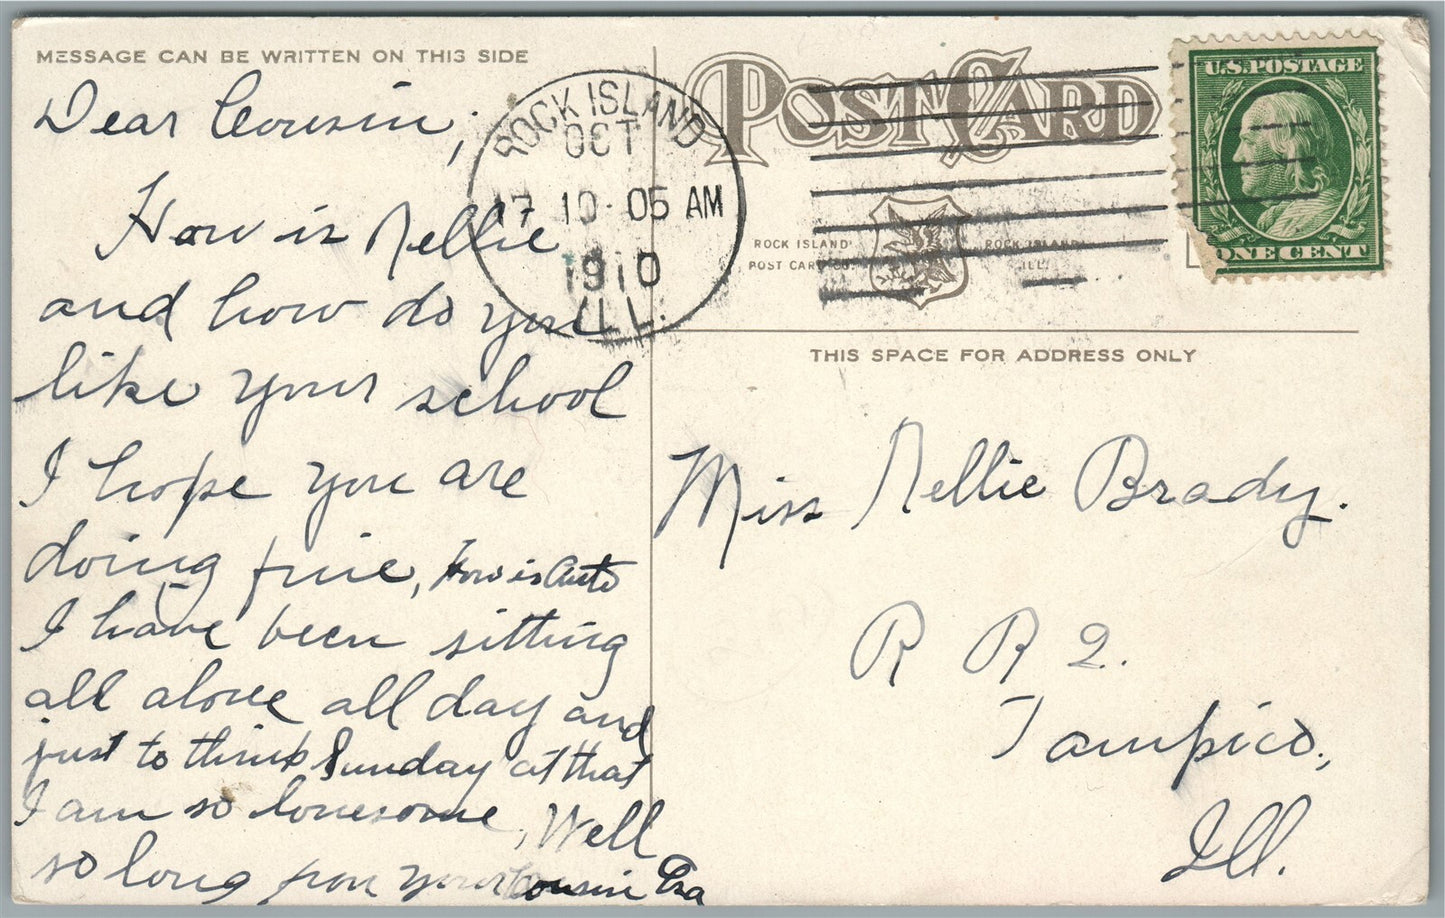 MESSAGE CAN BE WRITTEN ON THIS SIDE
Dear Cousin;
How is Nellie
and how do you
like your school
I hope you are
doing fine, How is Auto
I have been sitting
all alone all day and
just to think Sunday at that
I am so lonesome, Well
so long from your Cousin Ira
ROCK ISLAND
OCT
17 10-05 AM
1910
ILL.
POST CARD
ROCK ISLAND
POST CARD CO.
ROCK ISLAND
ILL.
U.S. POSTAGE
ONE CENT
THIS SPACE FOR ADDRESS ONLY
Miss Nellie Brady.
R R 2.
Tampico,
Ill.